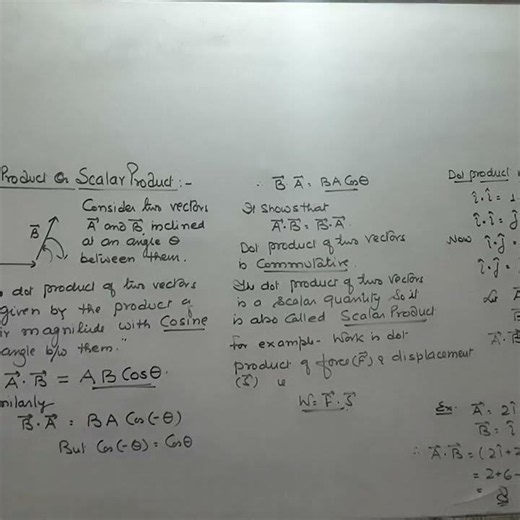 Product Or Scalar Product:-
Consider two vectors
A⃗ and B⃗ inclined
at an angle θ
between them.
B⃗
dot product of two vectors
given by the product of
magnitude with Cosine
angle b/w them."
A⃗·B⃗ = A B Cosθ
milarly
B⃗·A⃗ = B A Cos(-θ)
But Cos(-θ) = Cosθ
∴ B⃗·A⃗ = BA Cosθ
It shows that
A⃗·B⃗ = B⃗·A⃗
Dot product of two vectors
is Commutative.
dot product of two vectors
is a scalar quantity so it
is also called Scalar Product
for example- work is dot
product of force (F⃗) & displacement
(S⃗) ie
W = F⃗·S⃗
Dot product
î·î = 1
î·î = ĵ
Now î·ĵ =
î·ĵ =
A⃗·B⃗
Ex: A⃗ = 2î
B⃗ = î
∴ A⃗·B⃗ = (2î+2
= 2+6-
= 8